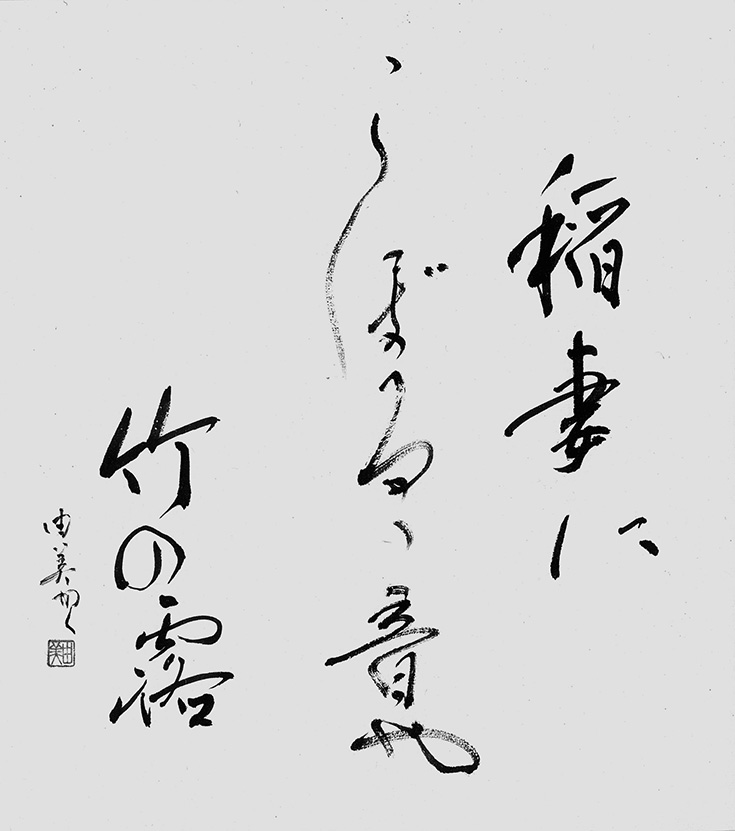 稲妻に
こぼるゝ音や
竹の露
由美
由美